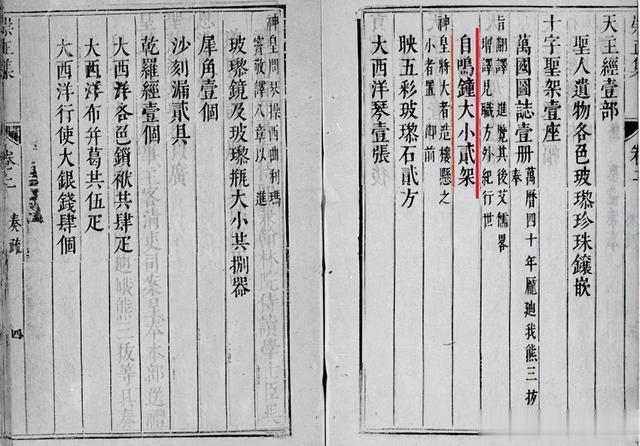 天主經壹部
聖人遺物各色玻瓈珍珠鑲嵌
十字聖架壹座
萬國圖誌壹冊 萬曆四十年龐廸我熊三拔奉
旨翻譯 進覽其後艾儒畧
增譯見職方外紀行世
自鳴鐘大小貳架
神皇將大者造樓懸之
小者置 御前
映五彩玻瓈石貳方
大西洋琴壹張
神皇問琴操西曲利瑪
竇敬譯八章以 進
玻瓈鏡及玻瓈瓶大小共捌器
犀角壹個
沙刻漏貳具
乾羅經壹個
大西洋各色鎖袱共肆疋
大西洋布并葛共伍疋
大西洋行使大銀錢肆個
崇正集 卷二 奏疏 四